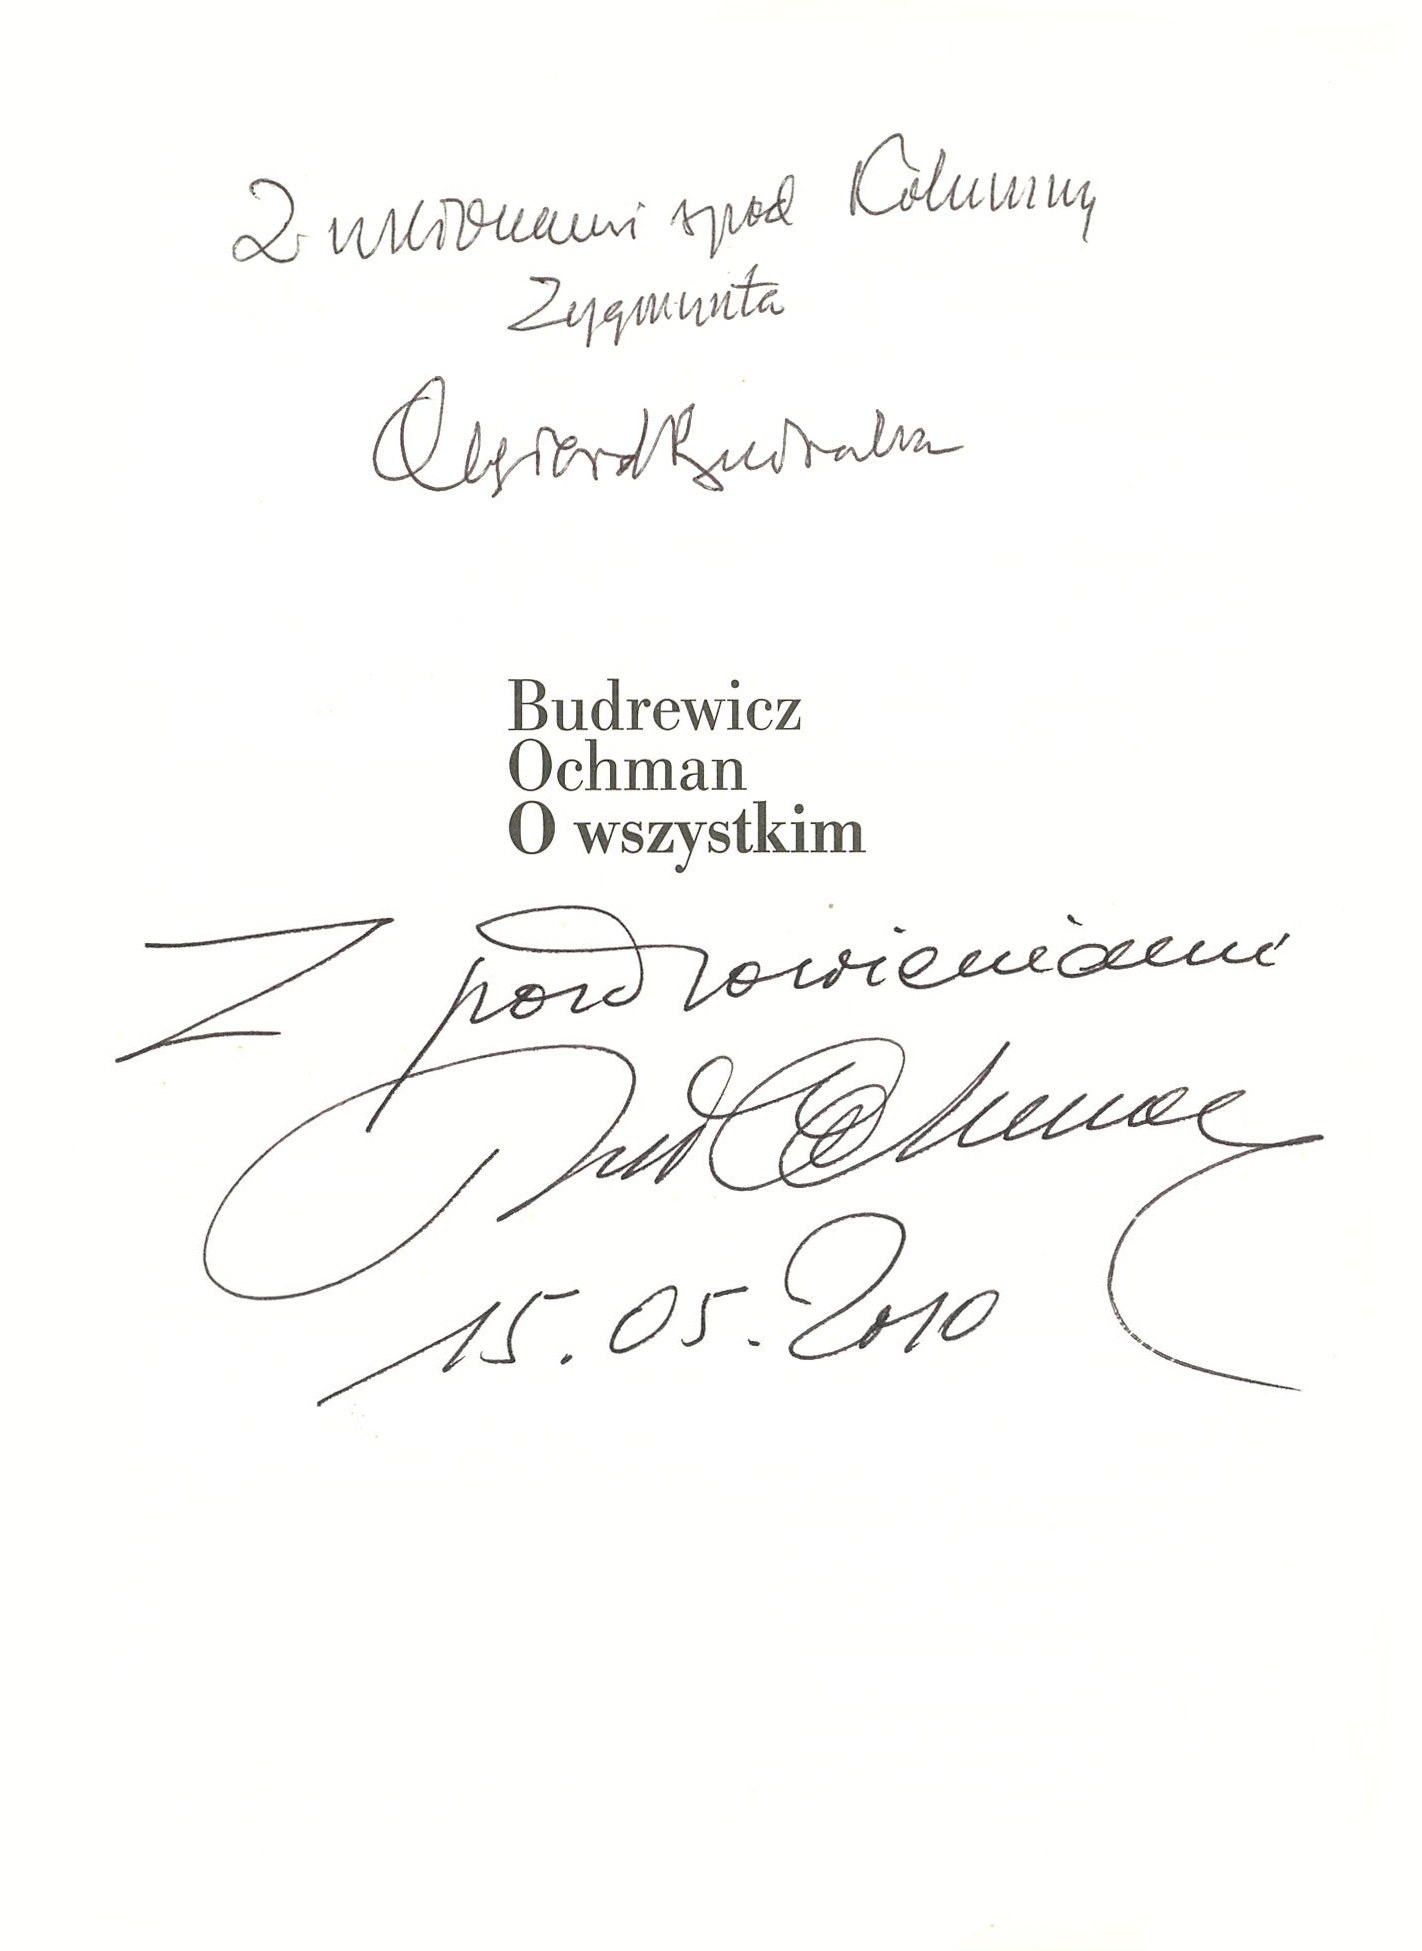 Z ukłonami spod Kolumny
Zygmunta
Olgierd Budrewicz
Budrewicz
Ochman
O wszystkim
Z pozdrowieniami
Ochman
15.05.2010